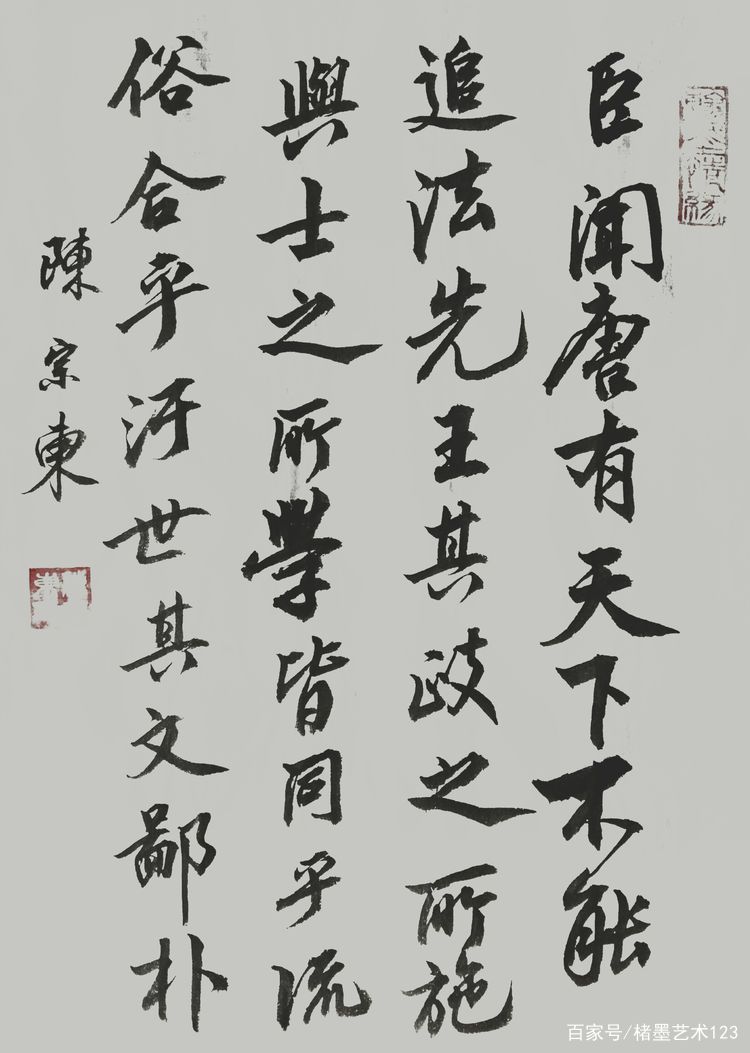 臣闻唐有天下不能
追法先王其政之所施
與士之所學皆同乎流
俗合乎汙世其文鄙朴
陳宗東
百家号/楮墨艺术123